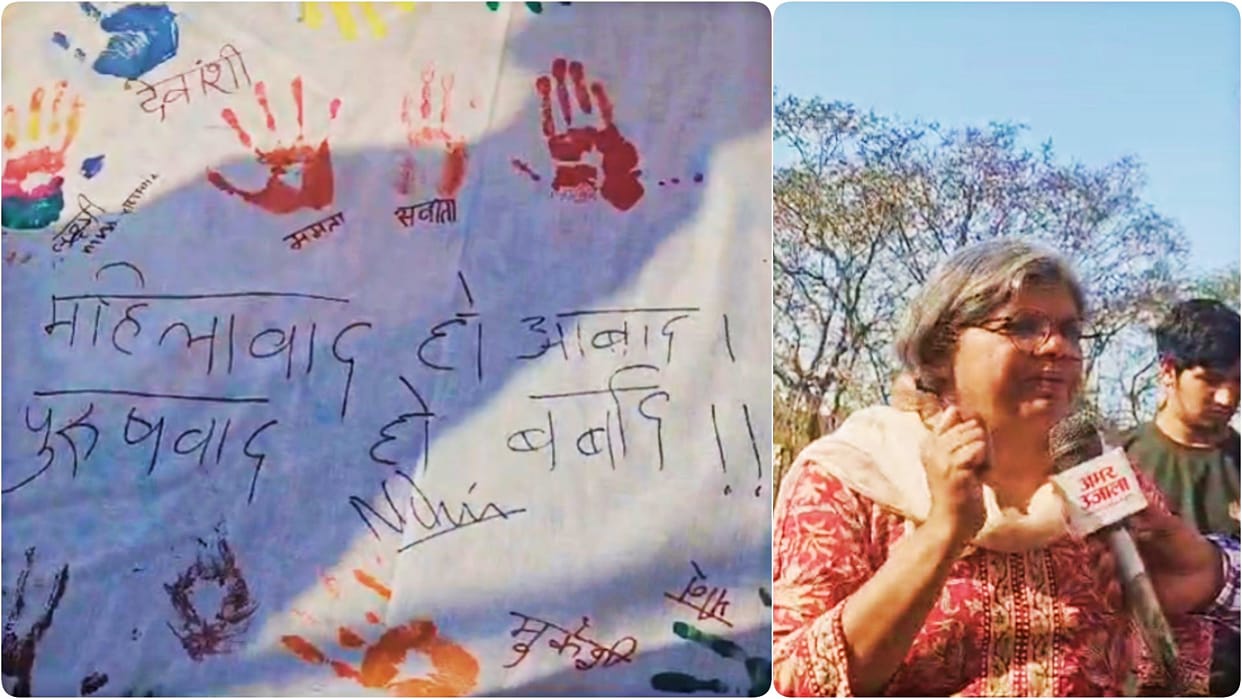 देवांशी
ममता
सवीता
महिलावाद हो आबाद ।
पुरुषवाद हो बर्बाद !!
मुकेशी
अमर
उजाला